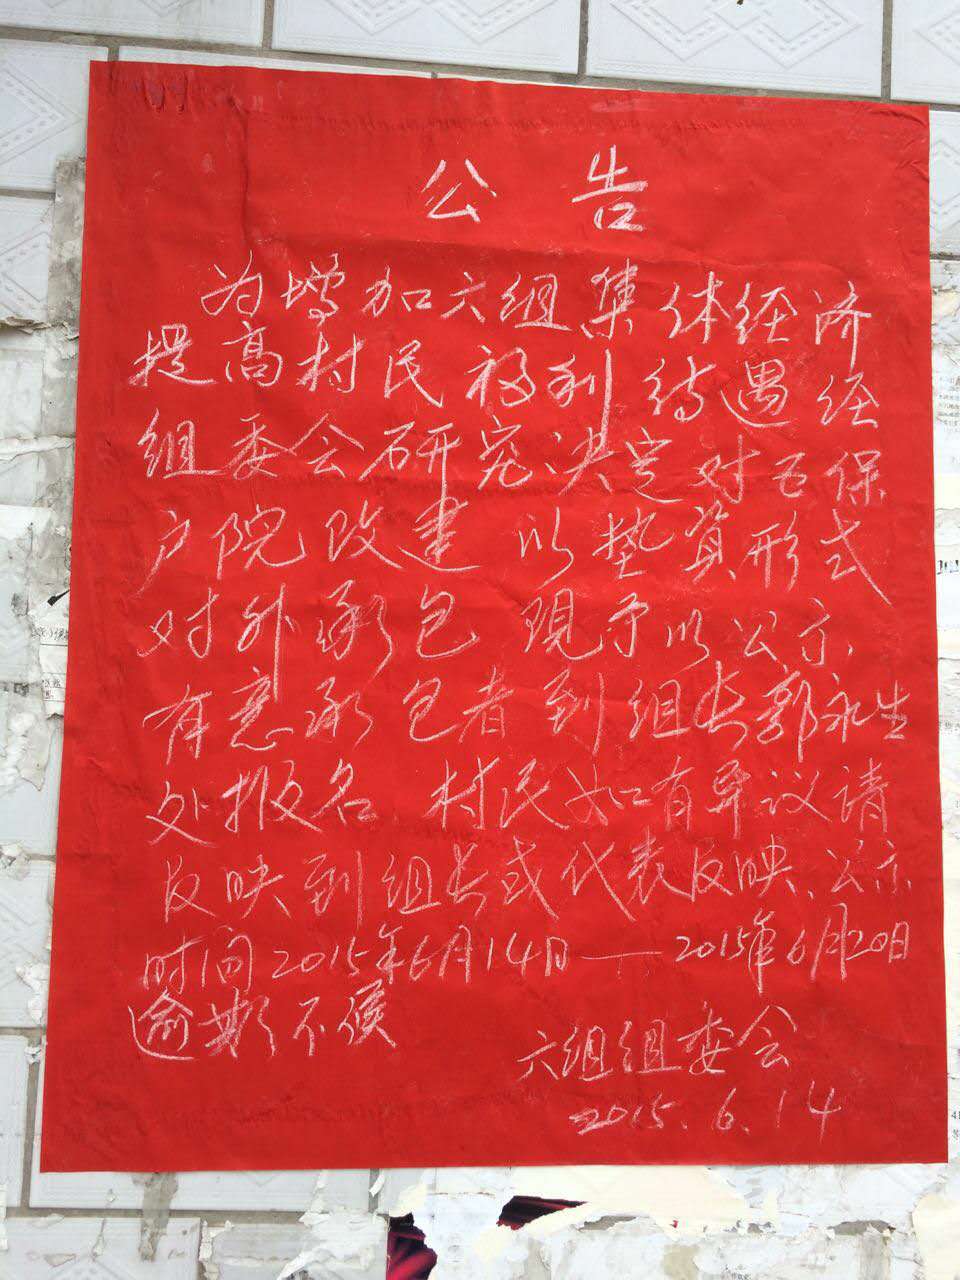 公告
为增加六组集体经济
提高村民福利待遇经
组委会研究决定对五保
户院改建 以垫资形式
对外承包 现予以公示
有意承包者到组长郭永生
处报名 村民如有异议请
反映到组长或代表反映、公示
时间2015年6月14日——2015年6月20日
逾期不候
六组组委会
2015.6.14